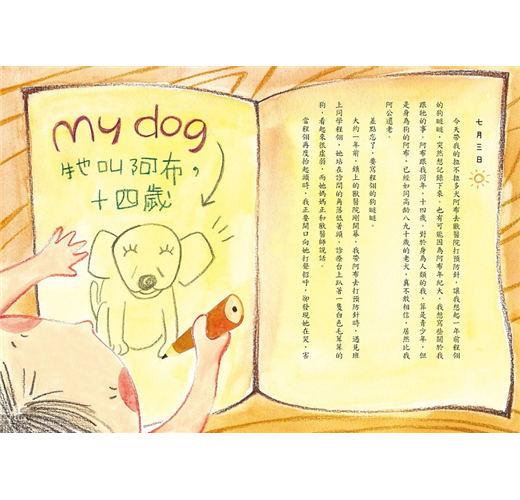 my dog
牠叫阿布，
十四歲
七月三日
今天帶我的拉不拉多犬阿布去獸醫院打預防針，讓我想起一年前程翎
的狗瞇瞇，突然想記錄下來。也有可能因為阿布年紀大，我想寫些關於我
跟牠的事。阿布跟我同年，十四歲，對於身為人類的我，算是青少年，但
是身為狗的阿布，已經如同高齡八九十歲的老犬，真不敢相信，居然比我
阿公還老。
差點忘了，要寫程翎的狗瞇瞇。
大約一年前，鎮上的獸醫院剛開幕，我帶阿布去打預防針時，遇見班
上同學程翎，她站在診間的角落低著頭，診療台上趴著一隻白色毛茸茸的
狗，看起來很虛弱，而她媽媽正和獸醫師說話。
當程翎再度抬起頭時，我正要開口向她打聲招呼，卻發現她在哭，害